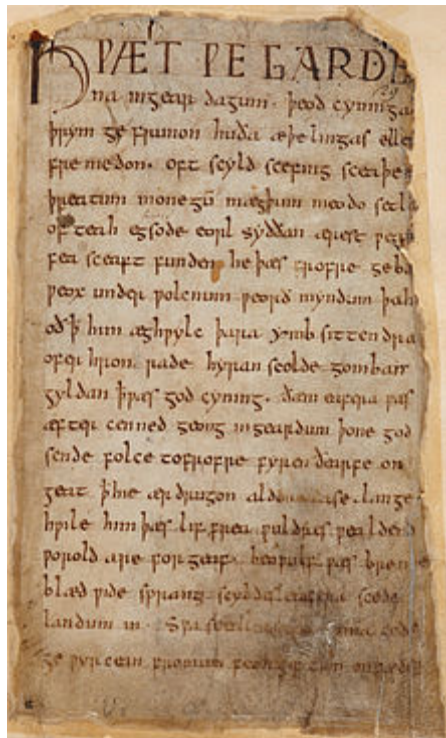 HǷÆT ǷE GARDE
na ingear dagum. þeod cyninga
þrym ge frunon huða æþelingas elle
fremedon. oft scyld scefing sceaþe
þreatum monegū mægþum meodo setla
of teah egsode eorl syððan ærest ƿear
fea sceaft funden he þæs frofre geba
ƿeox under ƿolcnum ƿeorð myndum þah
oð ꝥ him æghƿylc þara ymb sittendra
ofer hron rade hyran scolde gomban
gyldan ꝥ ƿæs god cyning. ðæm eafera ƿæs
æfter cenned geong in geardum þone god
sende folce tofrofre fyren ðearfe on
geat ꝥ hie ær drugon aldor ase. lange
hƿile him þæs lif frea ƿuldres ƿealdend
ƿorold are for geaf. beoƿulf ƿæs breme
blæd ƿide sprang scyldes eafera scede
landum in. Sƿa guma gode
ge ƿyrcean fromum feoh giftum on fæder